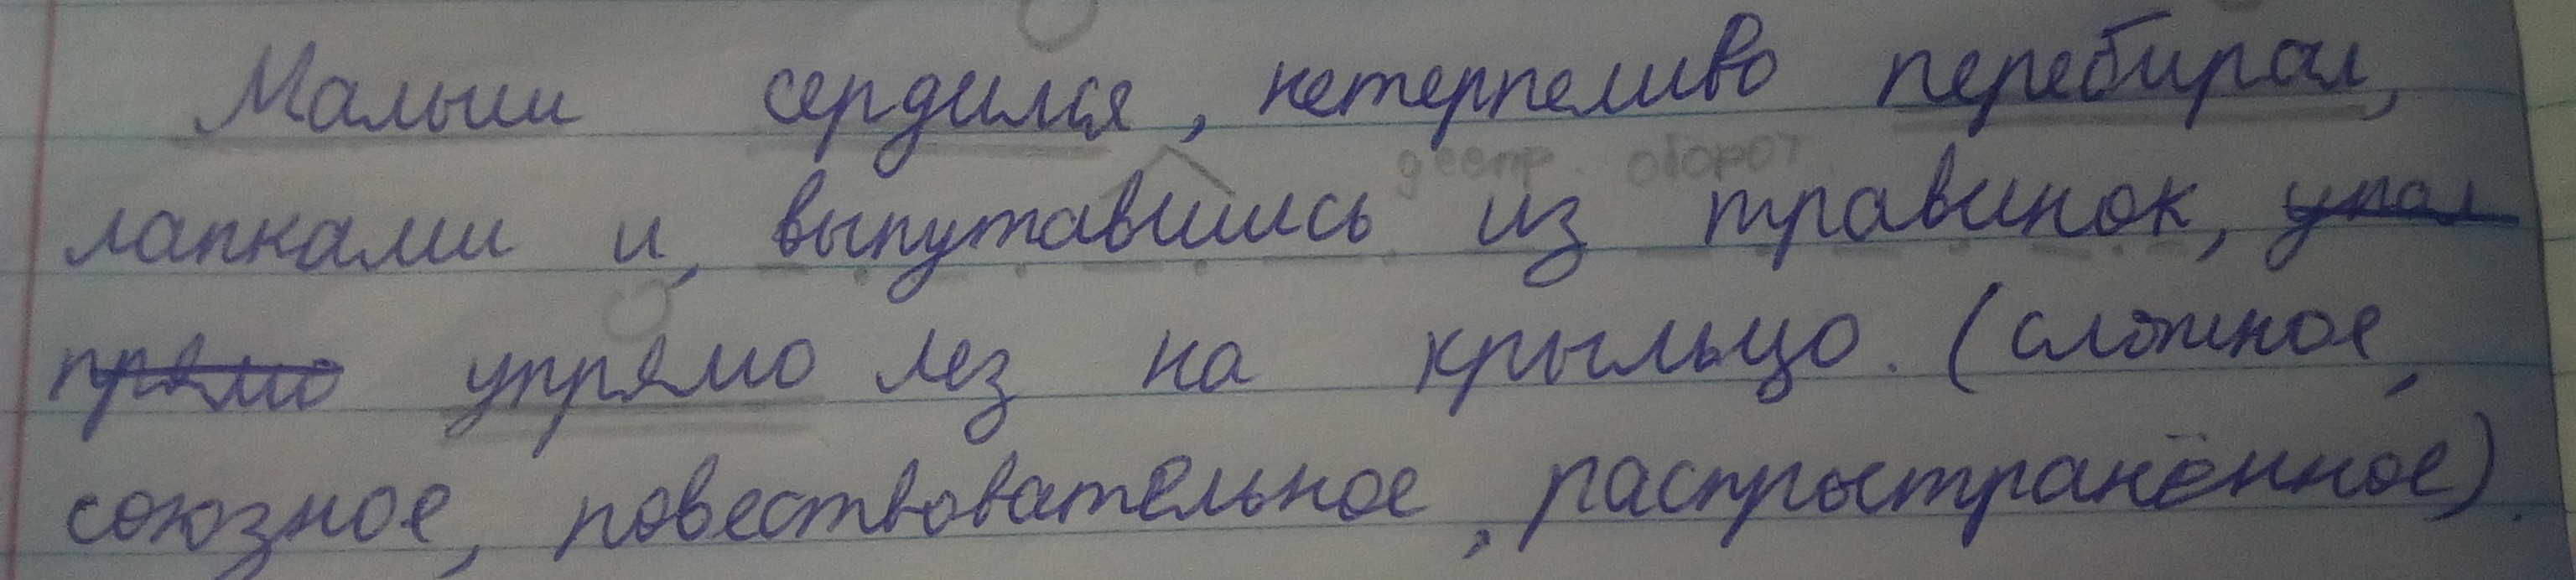 Малыш сердился, нетерпеливо перебирал,
деепр. оборот
лапками и, выпутавшись из травинок, упал
прямо упрямо лез на крыльцо. (сложное,
союзное, повествовательное, распространённое).